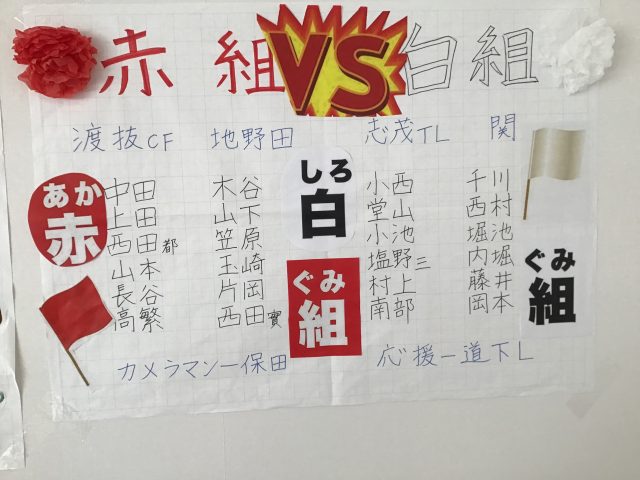 赤組 VS 白組
渡抜CF 地野田 志茂TL 関
あか
赤
中田
上田
西田都
山本
長谷
高繁
木谷
山下
笠原
玉崎
片岡
西田實
しろ
白
ぐみ
組
小西
堂山
小池
塩野三
村上
南部
千川
西村
堀池
内堀
藤井
岡本
ぐみ
組
カメラマンー保田
応援ー道下L